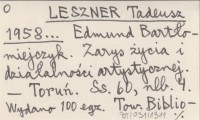 O LESZNER Tadeusz
1958... Edmund Bartło-
miejczyk. Zarys życia i
działalności artystycznej.
— Toruń. Ss. 60, nlb. 4.
Wydano 100 egz. Tow. Biblio-
%